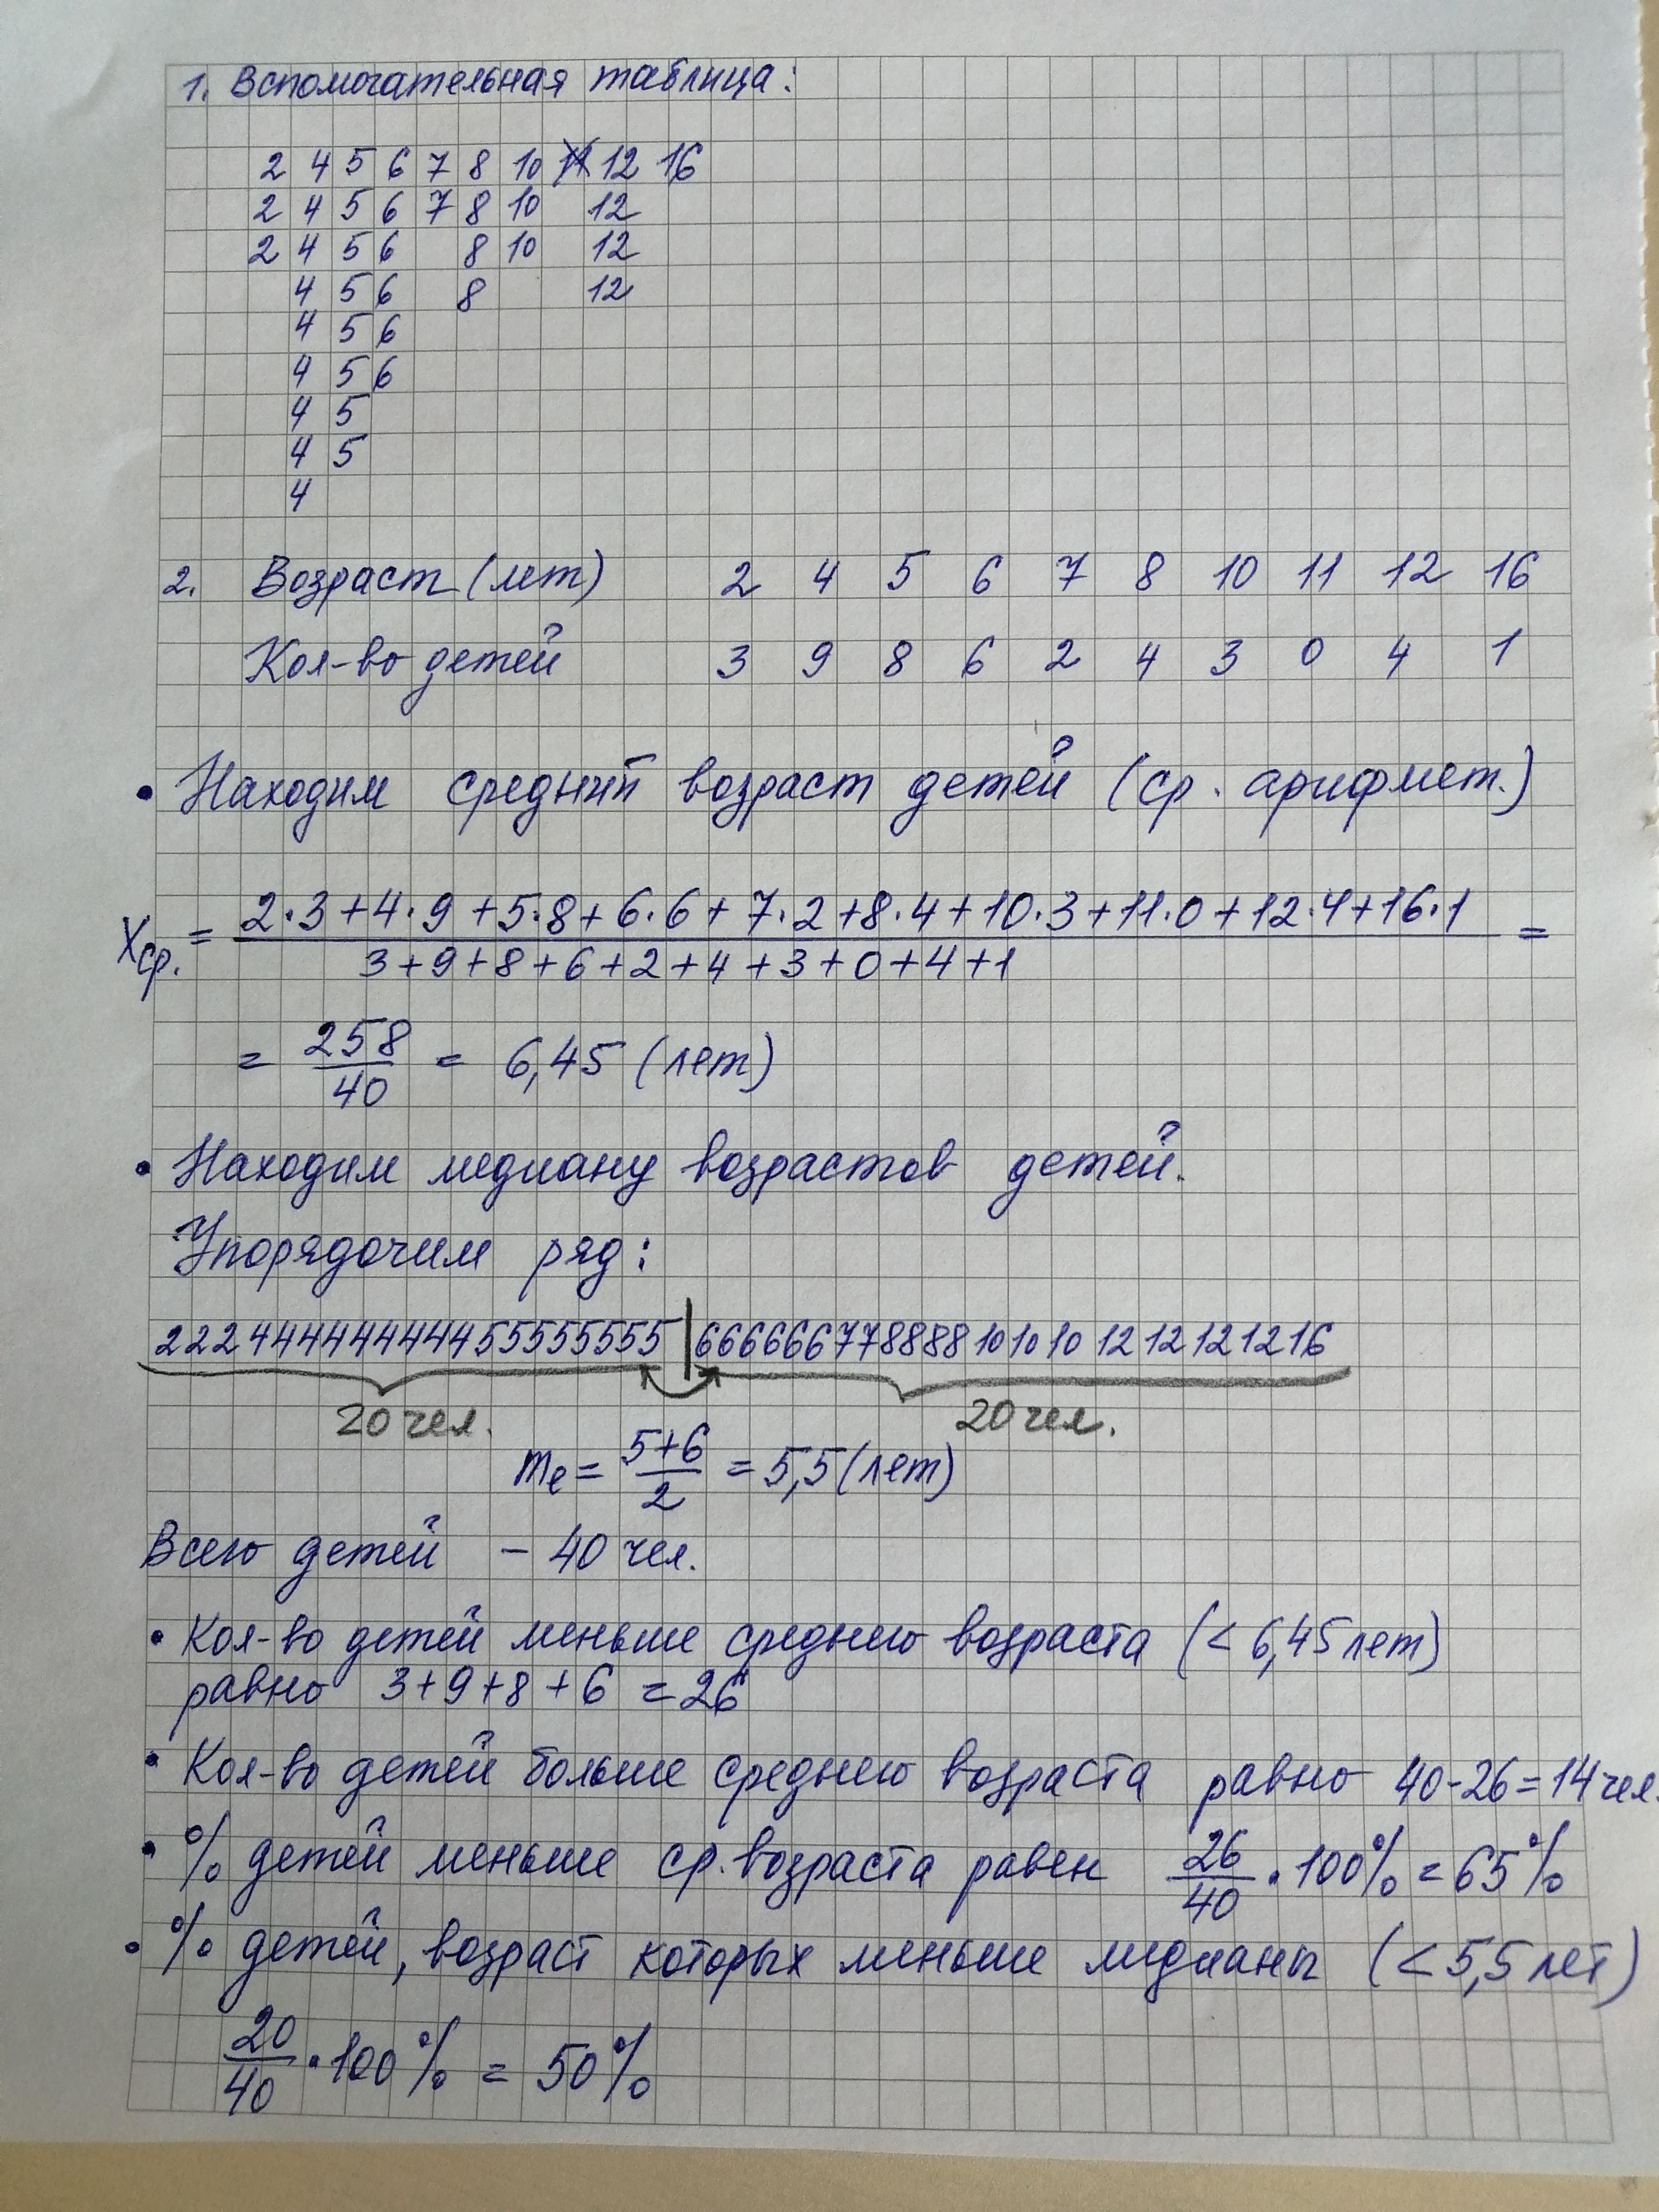 1. Вспомогательная таблица:
2 4 5 6 7 8 10 12 16
2 4 5 6 7 8 10 12
2 4 5 6 8 10 12
4 5 6 8 12
4 5 6
4 5 6
4 5
4 5
4
2. Возраст (лет) 2 4 5 6 7 8 10 11 12 16
Кол-во детей 3 9 8 6 2 4 3 0 4 1
• Находим средний возраст детей (ср. арифмет.)
Xср. = 2·3+4·9+5·8+6·6+7·2+8·4+10·3+11·0+12·4+16·1 =
3+9+8+6+2+4+3+0+4+1
= 258/40 = 6,45 (лет)
• Находим медиану возрастов детей.
Упорядочим ряд:
2 2 2 4 4 4 4 4 4 4 4 4 5 5 5 5 5 5 5 5 | 6 6 6 6 6 6 7 7 8 8 8 8 10 10 10 12 12 12 12 16
20 чел. 20 чел.
me = 5+6/2 = 5,5 (лет)
Всего детей - 40 чел.
• Кол-во детей меньше среднего возраста (< 6,45 лет)
равно 3+9+8+6 = 26
• Кол-во детей больше среднего возраста равно 40-26=14 чел.
• % детей меньше ср. возраста равен 26/40 · 100% = 65%
• % детей, возраст которых меньше медианы (< 5,5 лет)
20/40 · 100% = 50%